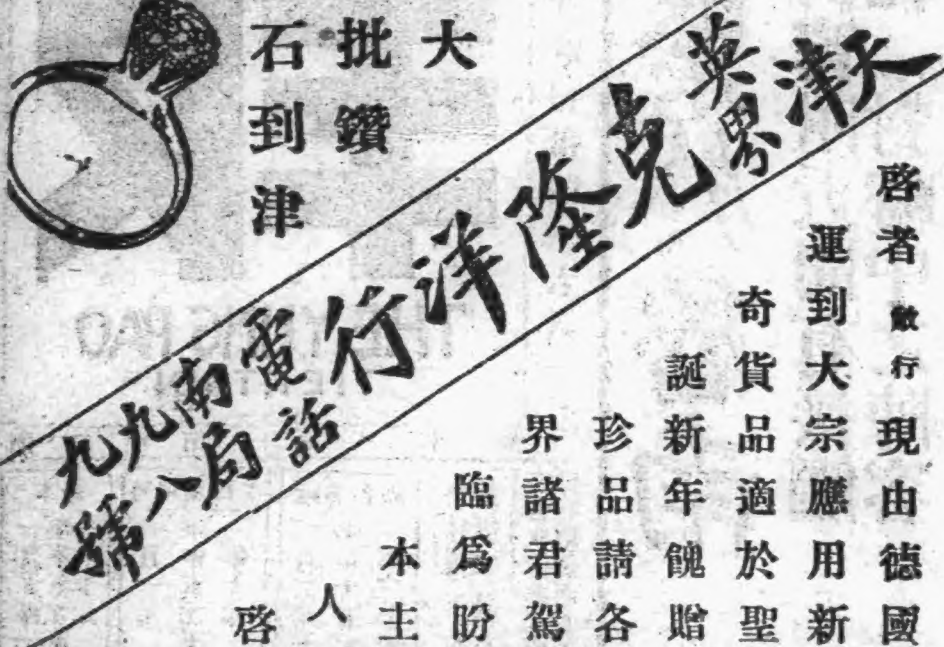 大
批鑽
石到津
天津
英界
克隆洋行
電話
南局
九八
九號
啓者敝行現由德國
運到大宗應用新
奇貨品適於聖
誕新年餽贈
珍品請各
界諸君駕
臨爲盼
本主
人
啓